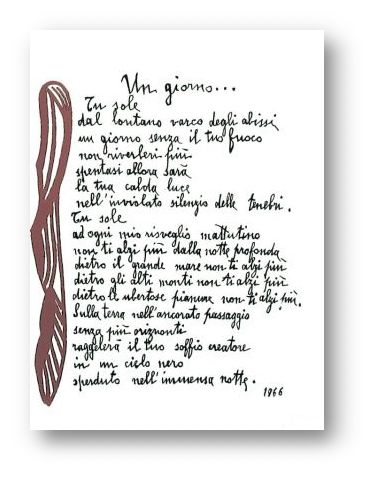 Un giorno...
Tu sole
dal lontano varco degli abissi
un giorno senza il tuo fuoco
non riverberi più
spentasi allora sarà
la tua calda luce
nell'inviolato silenzio delle tenebre.
Tu sole
ad ogni mio risveglio mattutino
non ti alzi più dalla notte profonda
dietro il grande mare non ti alzi più
dietro gli alti monti non ti alzi più
dietro le ubertose pianure non ti alzi più.
Sulla terra nell'ancorato paesaggio
senza più orizzonti
raggelerà il tuo soffio creatore
in un cielo nero
sperduto nell'immensa notte.
1966